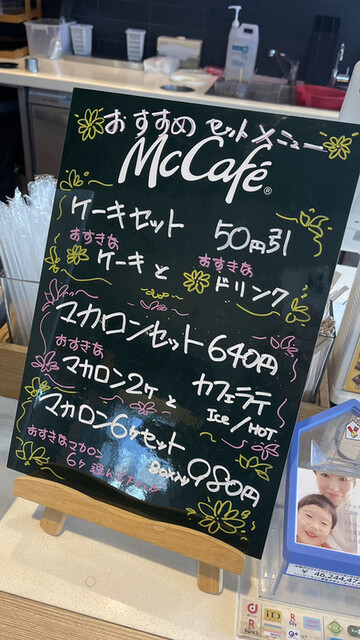 おすすめ セットメニュー
McCafé®
ケーキセット 50円引
おすきな おすきな
ケーキと ドリンク
マカロンセット 640円
おすきな
マカロン2ケと カフェラテ
Ice/HOT
マカロン6ケセット
おすきなマカロン
BOX入り 980円
iD